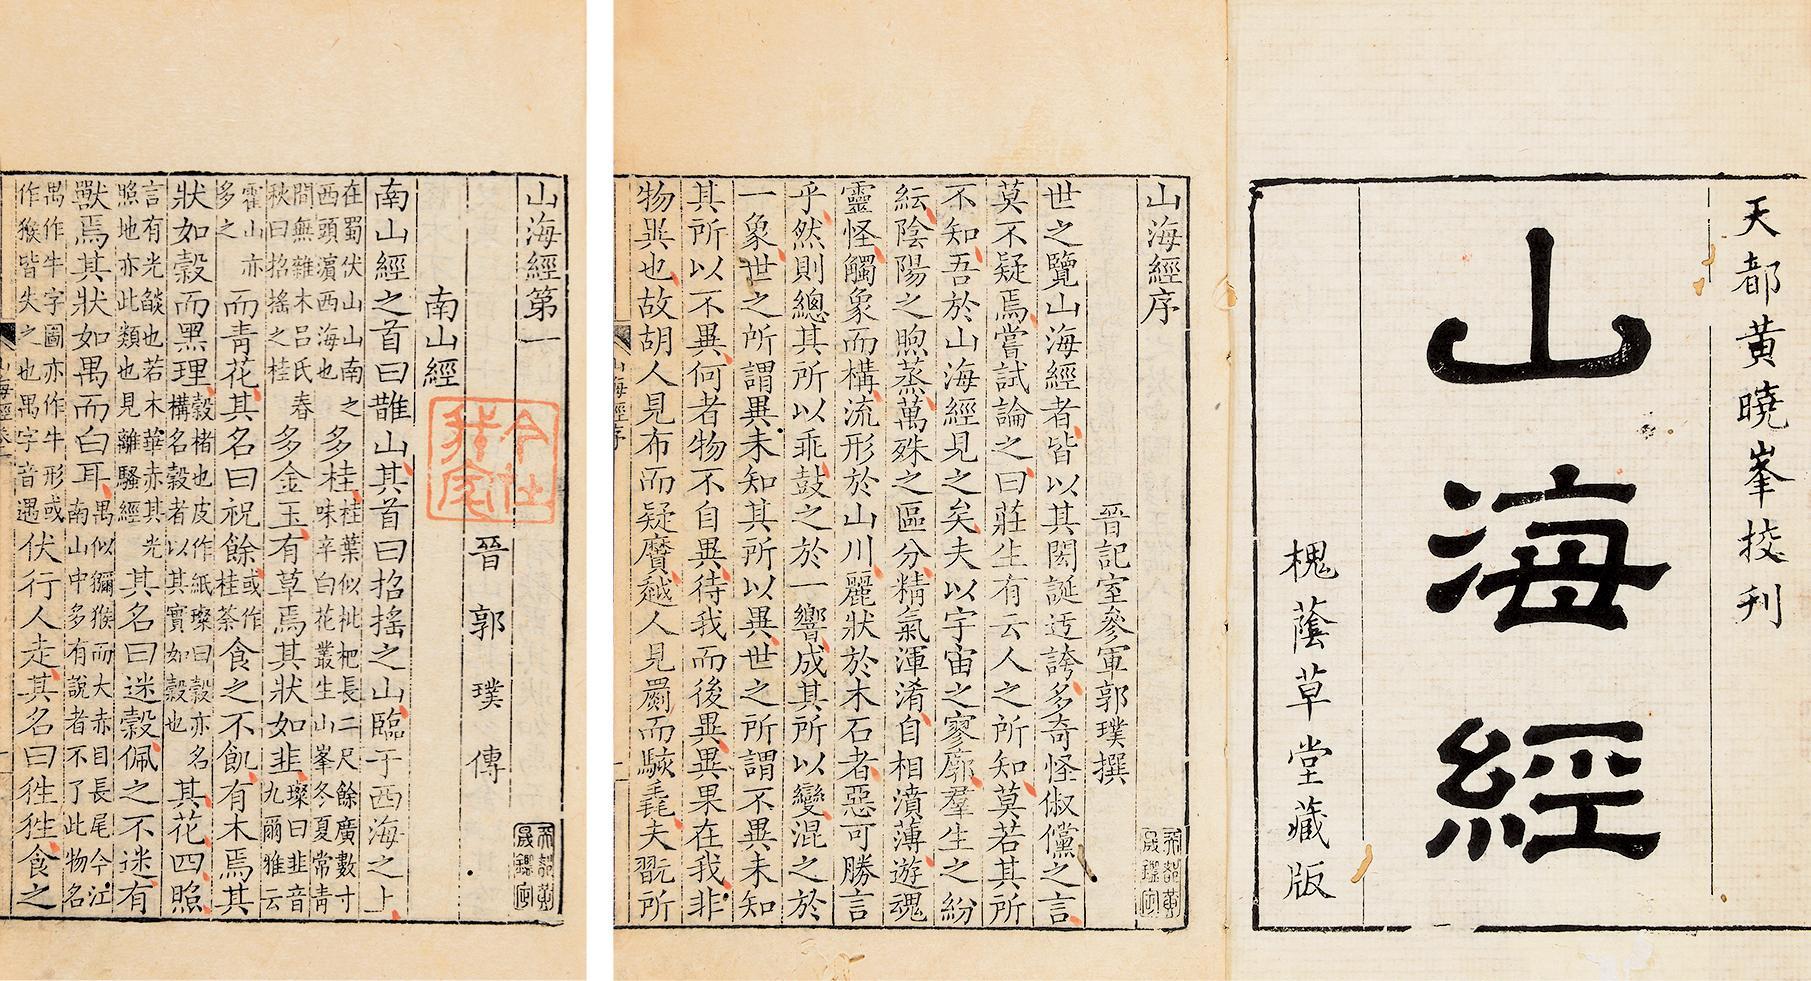 天都黃曉峯挍刊
山海經
槐蔭草堂藏版
山海經序
晉記室參軍郭璞撰
世之覽山海經者皆以其閎誕迂誇多奇怪俶儻之言
莫不疑焉嘗試論之曰莊生有云人之所知莫若其所
不知吾於山海經見之矣夫以宇宙之寥廓羣生之紛
紜陰陽之煦蒸萬殊之區分精氣渾淆自相濆薄遊魂
靈怪觸象而構流形於山川麗狀於木石者惡可勝言
乎然則總其所以乖鼓之於一響成其所以變混之於
一象世之所謂異未知其所以異世之所謂不異未知
其所以不異何者物不自異待我而後異異果在我非
物異也故胡人見布而疑黂越人見罽而駭毳夫翫所
山海經第一
晉郭璞傳
南山經
南山經之首曰䧿山其首曰招搖之山臨于西海之上
在蜀伏山山南之西頭濱西海也多桂桂葉似枇杷長二尺餘廣數寸味辛白花叢生山峯冬夏常靑
間無雜木呂氏春秋曰招搖之桂多金玉有草焉其狀如韭璨曰韭音九爾雅云
霍山亦多之而靑花其名曰祝餘或作桂荼食之不飢有木焉其
狀如榖而黑理榖楮也皮作紙璨曰榖亦名構名榖者以其實如榖也其花四照
言有光燄也若木華赤其光照地亦此類也見離騷經其名曰迷榖佩之不迷有
獸焉其狀如禺而白耳禺似獼猴而大赤目長尾今江南山中多有說者不了此物名
禺作牛字圖亦作牛形或作猴皆失之也禺字音遇伏行人走其名曰狌狌食之